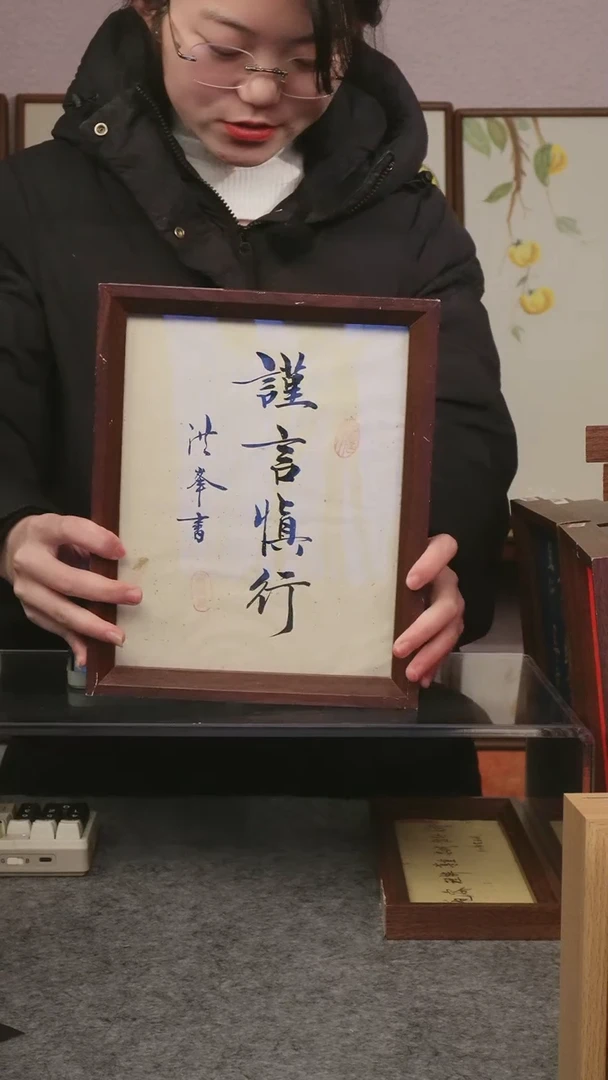 謹言慎行
洪峯書